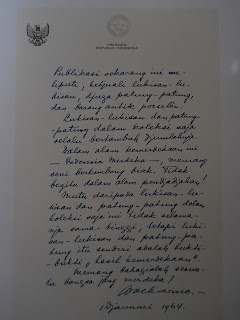 PRESIDEN
REPUBLIK INDONESIA
Publikasi sekarang ini me-
liputi, ketjuali lukisan-lu-
kisan, djuga patung-patung,
dan barang antik porselen.
Lukisan-lukisan dan patung-
-patung dalam koleksi saja
selalu bertambah djumlahnja.
Dalam alam kemerdekaan ini
— Indonesia Merdeka —, memang
seni berkembang baik. Tidak
begitu dalam alam pendjadjahan!
Mutu daripada lukisan-lu-
kisan dan patung-patung dalam
koleksi saja ini tidak selama-
nja sama-tinggi, tetapi luki-
san-lukisan dan patung-pa-
tung itu sendiri adalah bukti-
-bukti, hasil kemerdekaan.
Memang bahagialah sesua-
tu bangsa jang merdeka!
Soekarno.—
1 Djanuari 1964.